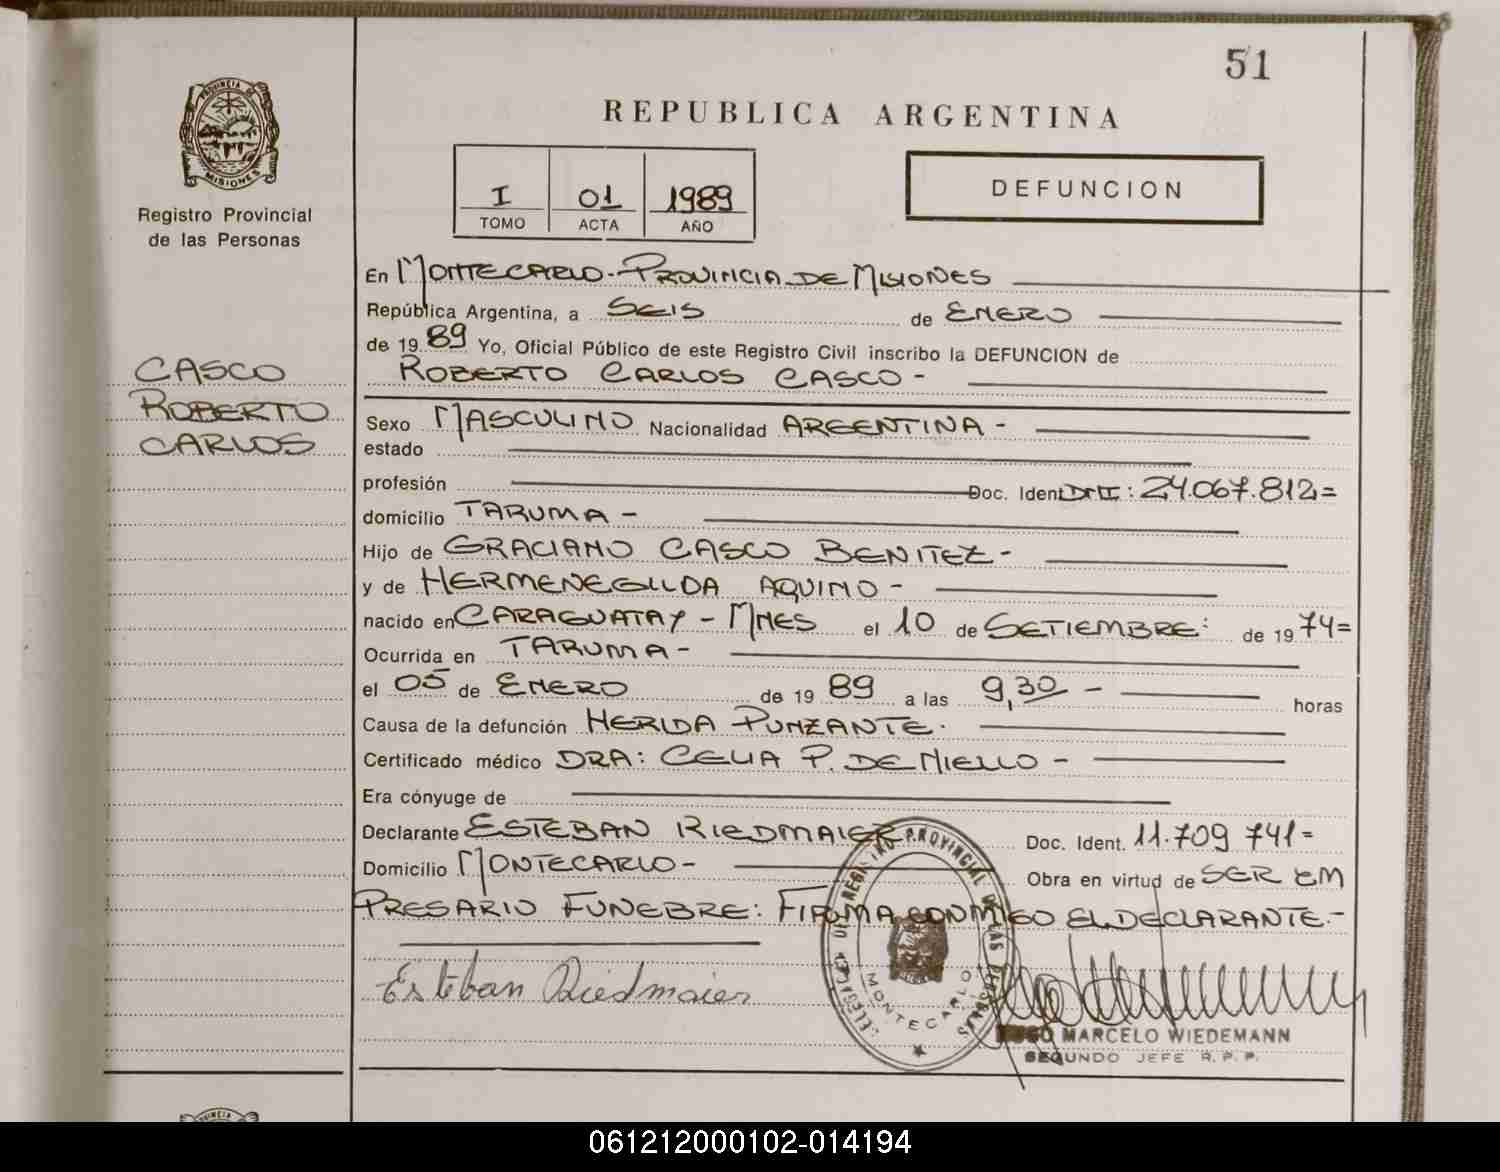 51
PROVINCIA DE
MISIONES
Registro Provincial
de las Personas
REPUBLICA ARGENTINA
I 01 1989
TOMO ACTA AÑO
DEFUNCION
CASCO
ROBERTO
CARLOS
En MONTECARLO - PROVINCIA DE MISIONES
República Argentina, a SEIS de ENERO
de 19 89 Yo, Oficial Público de este Registro Civil inscribo la DEFUNCION de
ROBERTO CARLOS CASCO -
Sexo MASCULINO Nacionalidad ARGENTINA -
estado
profesión Doc. Ident. DNI: 24.067.812=
domicilio TARUMA -
Hijo de GRACIANO CASCO BENITEZ -
y de HERMENEGILDA AQUINO -
nacido en CARAGUATAY - MNES el 10 de SETIEMBRE: de 19 74=
Ocurrida en TARUMA -
el 05 de ENERO de 19 89 a las 9,30 - horas
Causa de la defunción HERIDA PUNZANTE.
Certificado médico DRA: CELIA P. DE MIELLO -
Era cónyuge de
Declarante ESTEBAN RIEDMAIER Doc. Ident. 11.709 741=
Domicilio MONTECARLO - Obra en virtud de SER EM
PRESARIO FUNEBRE: FIRMA CONMIGO EL DECLARANTE.-
Esteban Riedmaier
REGISTRO PROVINCIAL DE LAS PERSONAS
MONTECARLO
HUGO MARCELO WIEDEMANN
SEGUNDO JEFE R. P. P.
061212000102-014194